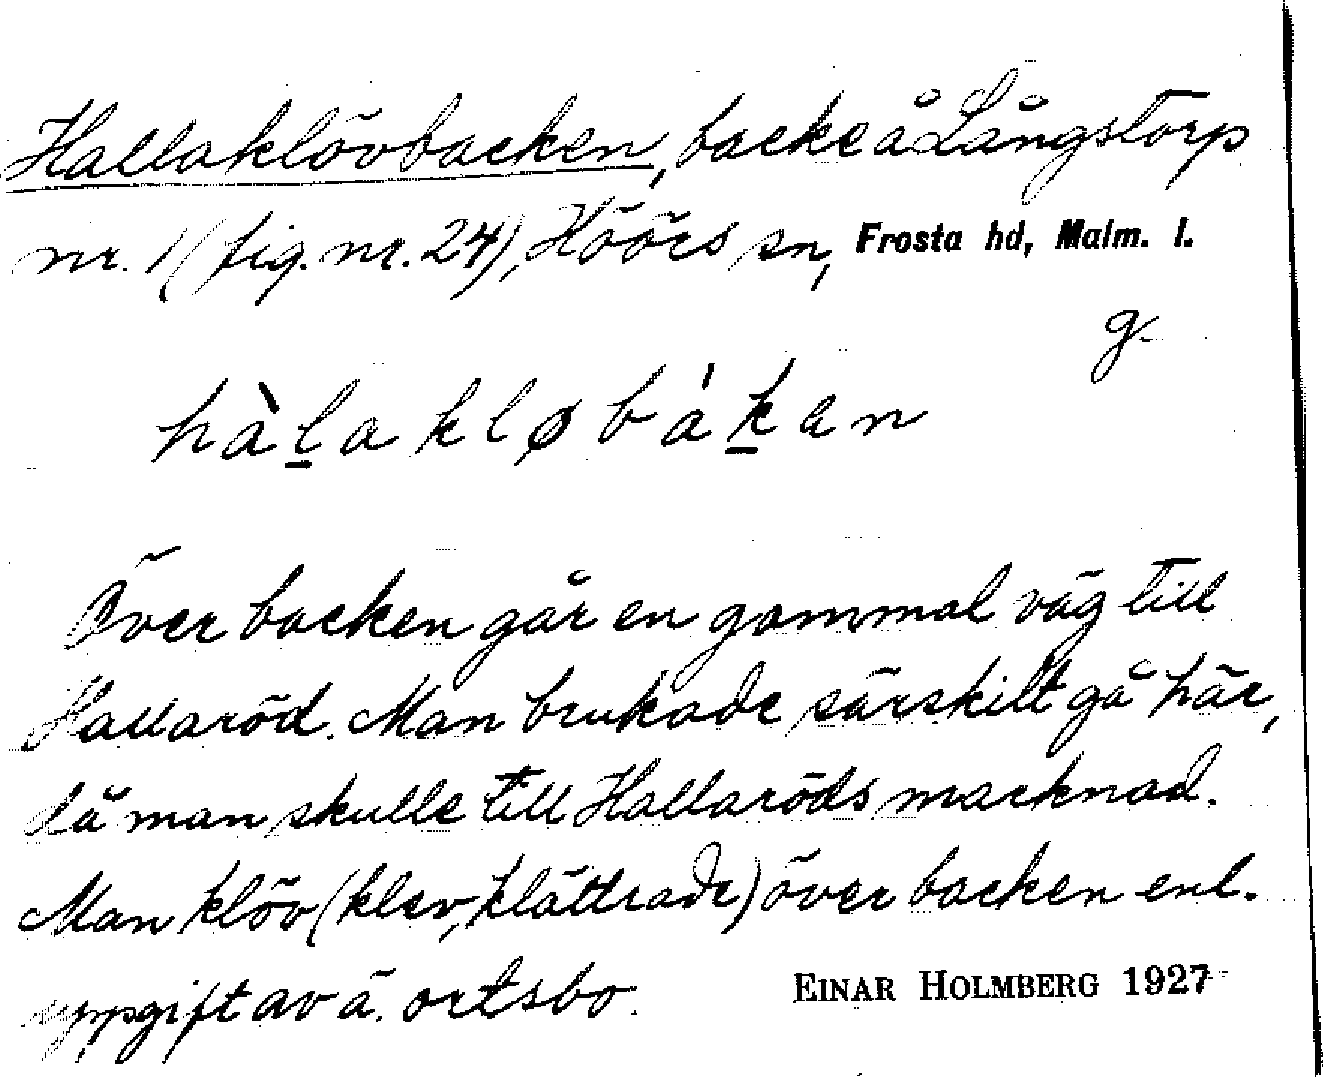 Hallaklövbacken, backe å Långstorp
nr. 1 (fig. nr. 24), Höörs sn, Frosta hd, Malm. l.
g.
hàl̠akløbák̠en
Över backen går en gammal väg till
Hallaröd. Man brukade särskilt gå här,
då man skulle till Hallaröds marknad.
Man klöv (klev, klättrade) över backen enl.
uppgift av ä. ortsbo.
EINAR HOLMBERG 1927